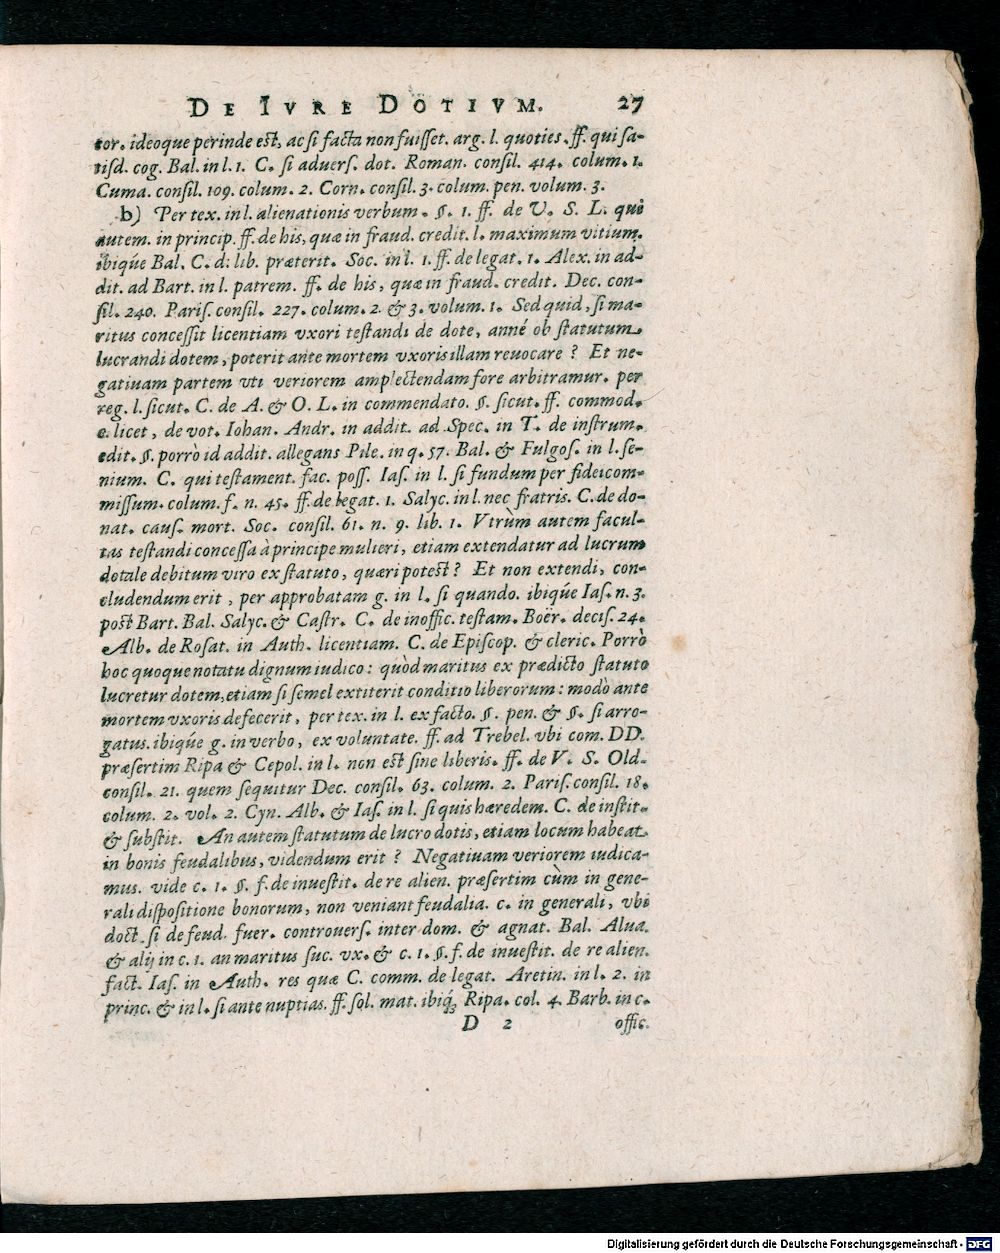 DE IVRE DOTIVM. 27
tor. ideoque perinde est, ac si facta non fuisset. arg. l. quoties. ff. qui sa-
tisd. cog. Bal. in l. 1. C. si aduers. dot. Roman. consil. 414. colum. 1.
Cuma. consil. 109. colum. 2. Corn. consil. 3. colum. pen. volum. 3.
b) Per tex. in l. alienationis verbum. §. 1. ff. de V. S. L. qui
autem. in princip. ff. de his, quæ in fraud. credit. l. maximum vitium.
ibiq́ue Bal. C. d: lib. præterit. Soc. in l. 1. ff. de legat. 1. Alex. in ad-
dit. ad Bart. in l. patrem. ff. de his, quæ in fraud. credit. Dec. con-
sil. 240. Paris. consil. 227. colum. 2. & 3. volum. 1. Sed quid, si ma-
ritus concessit licentiam vxori testandi de dote, anné ob statutum
lucrandi dotem, poterit ante mortem vxoris illam reuocare? Et ne-
gatiuam partem vti veriorem amplectendam fore arbitramur. per
reg. l. sicut. C. de A. & O. L. in commendato. §. sicut. ff. commod.
c. licet, de vot. Iohan. Andr. in addit. ad Spec. in T. de instrum.
edit. §. porrò id addit. allegans Pile. in q. 57. Bal. & Fulgos. in l. se-
nium. C. qui testament. fac. poss. Ias. in l. si fundum per fideicom-
missum. colum. f. n. 45. ff. de legat. 1. Salyc. in l. nec fratris. C. de do-
nat. caus. mort. Soc. consil. 61. n. 9. lib. 1. Vtrùm autem facul-
tas testandi concessa à principe mulieri, etiam extendatur ad lucrum
dotale debitum viro ex statuto, quæri potest? Et non extendi, con-
cludendum erit, per approbatam g. in l. si quando. ibiq́ue Ias. n. 3.
post Bart. Bal. Salyc. & Castr. C. de inoffic. testam. Boër. decis. 24.
Alb. de Rosat. in Auth. licentiam. C. de Episcop. & cleric. Porrò
hoc quoque notatu dignum iudico: quòd maritus ex prædicto statuto
lucretur dotem, etiam si semel extiterit conditio liberorum: modò ante
mortem vxoris defecerit, per tex. in l. ex facto. §. pen. & §. si arro-
gatus. ibiq́ue g. in verbo, ex voluntate. ff. ad Trebel. vbi com. DD.
præsertim Ripa & Cepol. in l. non est sine liberis. ff. de V. S. Old.
consil. 21. quem sequitur Dec. consil. 63. colum. 2. Paris. consil. 18.
colum. 2. vol. 2. Cyn. Alb. & Ias. in l. si quis hæredem. C. de instit.
& substit. An autem statutum de lucro dotis, etiam locum habeat
in bonis feudalibus, videndum erit? Negatiuam veriorem iudica-
mus. vide c. 1. §. f. de inuestit. de re alien. præsertim cùm in gene-
rali dispositione bonorum, non veniant feudalia. c. in generali, vbi
doct. si de feud. fuer. controuers. inter dom. & agnat. Bal. Alua.
& alij in c. 1. an maritus suc. vx. & c. 1. §. f. de inuestit. de re alien.
fact. Ias. in Auth. res quæ C. comm. de legat. Aretin. in l. 2. in
princ. & in l. si ante nuptias. ff. sol. mat. ibiq́; Ripa. col. 4. Barb. in c.
D 2 offic.
Digitalisierung gefördert durch die Deutsche Forschungsgemeinschaft - DFG